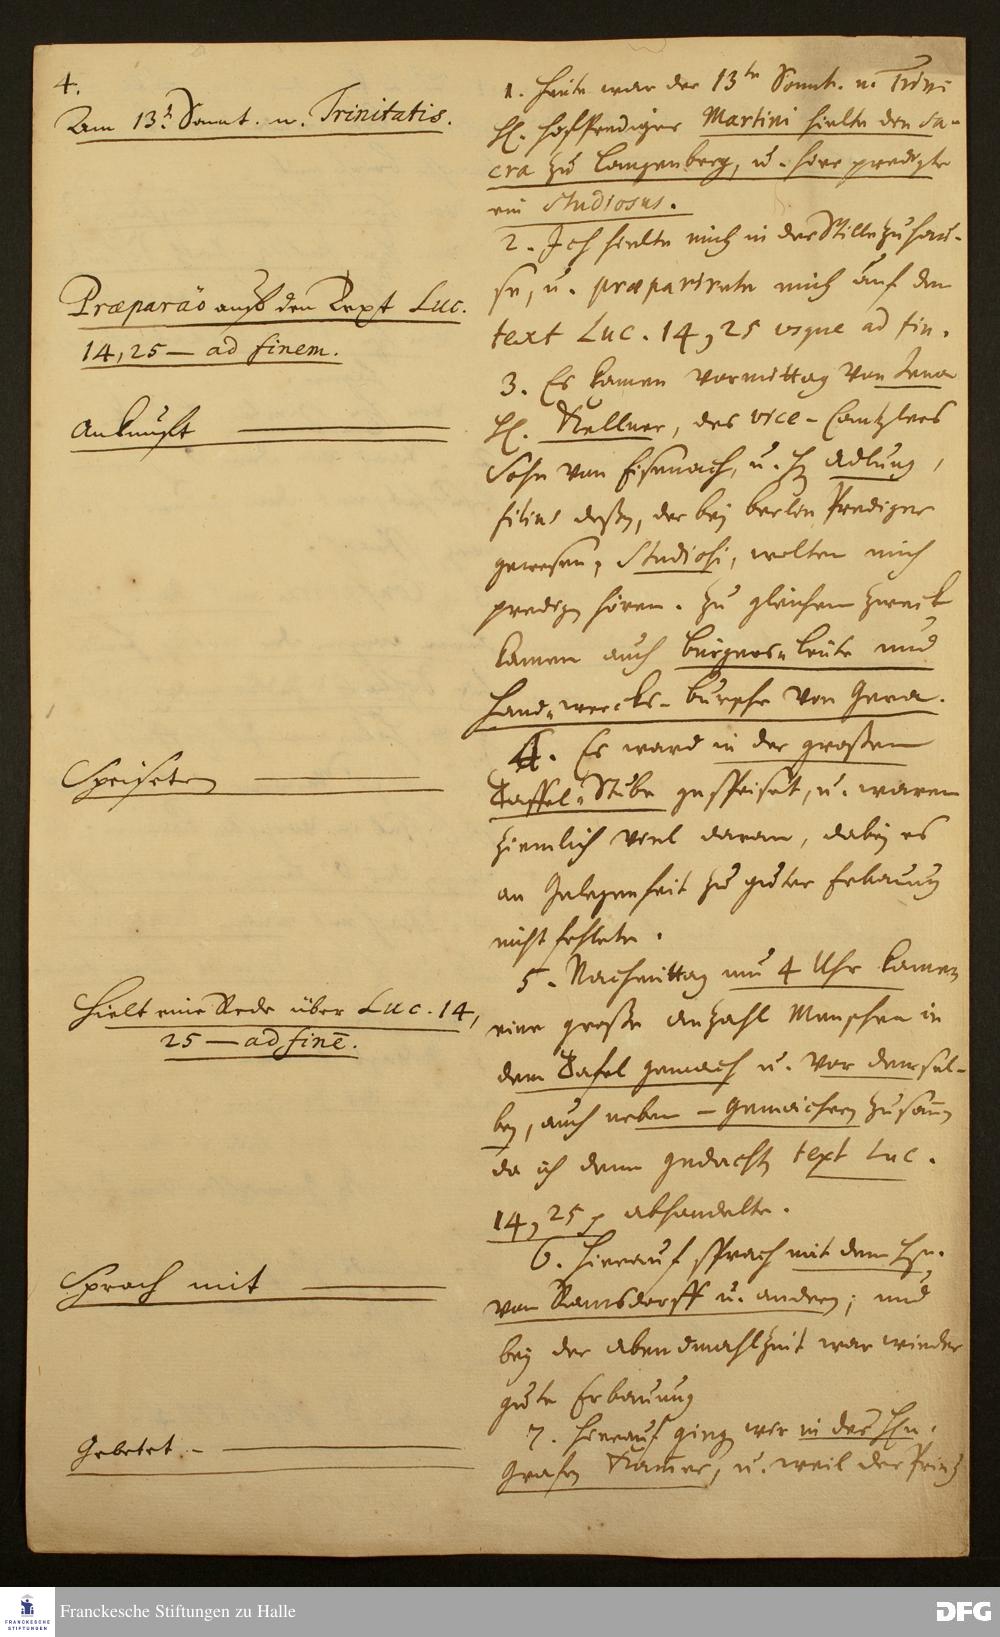 4.
Am 13t. Sonnt. n. Trinitatis.
Præparão auß den Text Luc.
14, 25 — ad finem.
Ankunfft
Speiseten
Hielt eine Rede über Luc. 14,
25 — ad finē.
Sprach mit
Gebetet. -
1. Heute war der 13te Sonnt. n. Trini
H. Hoffprediger Martini hielte den Sa-
cra zu Langenberg, u. hier predigte
ein Studiosus.
2. Ich hielte mich in der Stille zu Hau-
se, u. præparirete mich auf den
text Luc. 14, 25 usque ad fin.
3. Es kamen Vormittag von Jena
H. Kellner, des vice-Cantzlers
Sohn von Eisenach, u. H. Adlung,
filius deßen, der bey Berlin Prediger
gewesen, Studiosi, wolten mich
predigen hören. Zu gleichem Zweck
kamen auch bürgers-leute und
Handwercks-bursche von Gera.
4. Es ward in der großen
Taffel-Stube gespeiset, u. waren
ziemlich viel daran, dabey es
an Gelegenheit zu guter Erbauung
nicht fehlete.
5. Nachmittag um 4 Uhr kamen
eine große anzahl Menschen in
dem Tafel gemach u. vor demsel-
ben, auch neben-Gemächern zusamen
da ich denn gedachten text Luc.
14, 25 abhandelte.
6. Hierauf sprach mit dem Hn.
von Ramsdorff u. andern; und
bey der abendmahlzeit war wieder
gute Erbauung
7. Hierauf ging wir in des Hn.
Grafen Kamer, u. weil der Prinz
Franckesche Stiftungen zu Halle
FRANCKESCHE
STIFTUNGEN
DFG